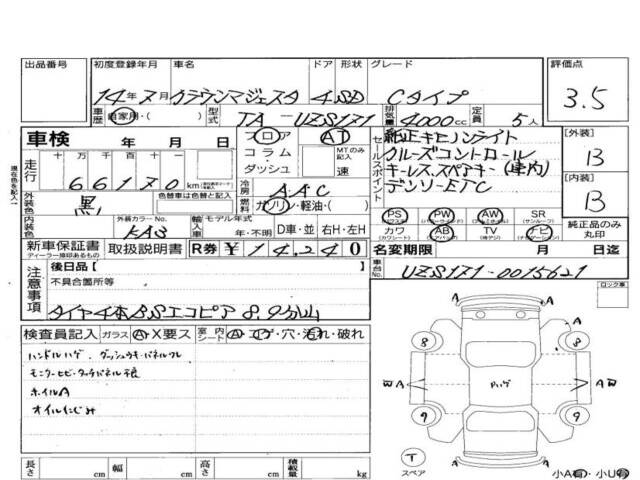 出品番号 初度登録年月 車名 ドア 形状 グレード 評価点
14年7月 クラウンマジェスタ 4.SD Cタイプ 3.5
車歴 自家用・( ) 型式 TA-UZS171 排気量 4000cc 定員 5人
車検 年 月 日 フロア AT セールスポイント 純正キセノンライト 【外装】
走行 十 万 千 百 十 コラム・ダッシュ MTのみ記入 速 クルーズコントロール B
66170 km キーレス.スペアキー(車内) 【内装】
現在色を記入 外装色 黒 色替車は色替と記入 冷房 AAC デンソーETC B
燃料 ガソリン・軽油・( )
内装色 外装カラーNo. KAS 輸入車 モデル年式 年・不明 D車・並 右H・左H
PS (パワステ) PW (パワーウインド) AW (アルミホイル) SR (サンルーフ) 純正品のみ丸印
カワ (カワシート) AB (エアバッグ) TV (地デジ) ナビ (ナビゲーション)
新車保証書 ディーラー捺印あるもの 取扱説明書 R券 ¥14,240 名変期限 月 日迄
注意事項 後日品【 】 車台No. UZS171-0015621
不具合箇所等 ロック車
タイヤ4本BSエコピア8.9分山
検査員記入 ガラス A・X要ス 室内シート A・コゲ・穴・汚れ・破れ
ハンドルハゲ.ダッシュウキ・パネルワレ
モニターヒビ・タッチパネル不良
ホイルA
オイルにじみ
A
A A
8 8
W A A W
9 9
T スペア
A
小A有・小U有
長さ cm 幅 cm 高さ cm 積載量 kg